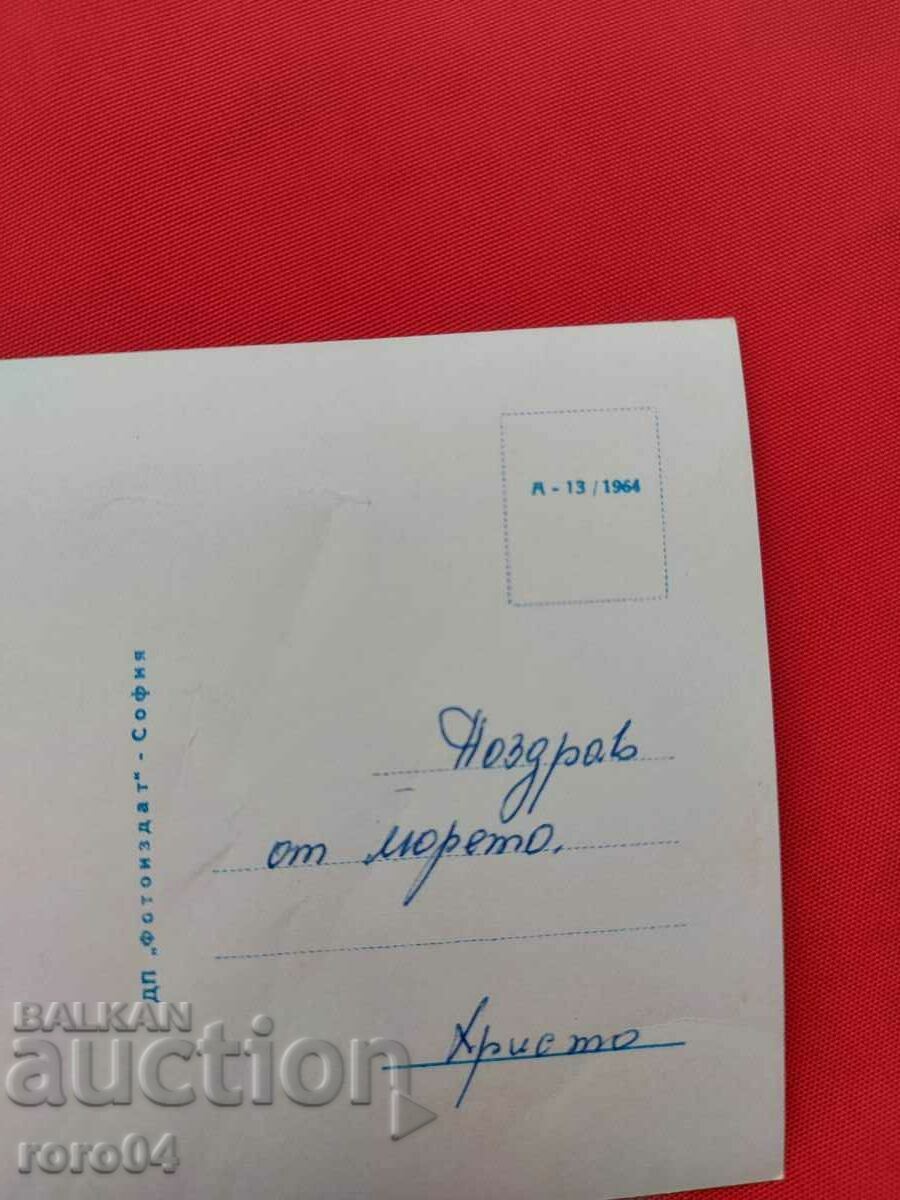 А - 13 / 1964
ДП „Фотоиздат" - София
Поздрав
от морето.
Христо
BALKAN
auction
roro04